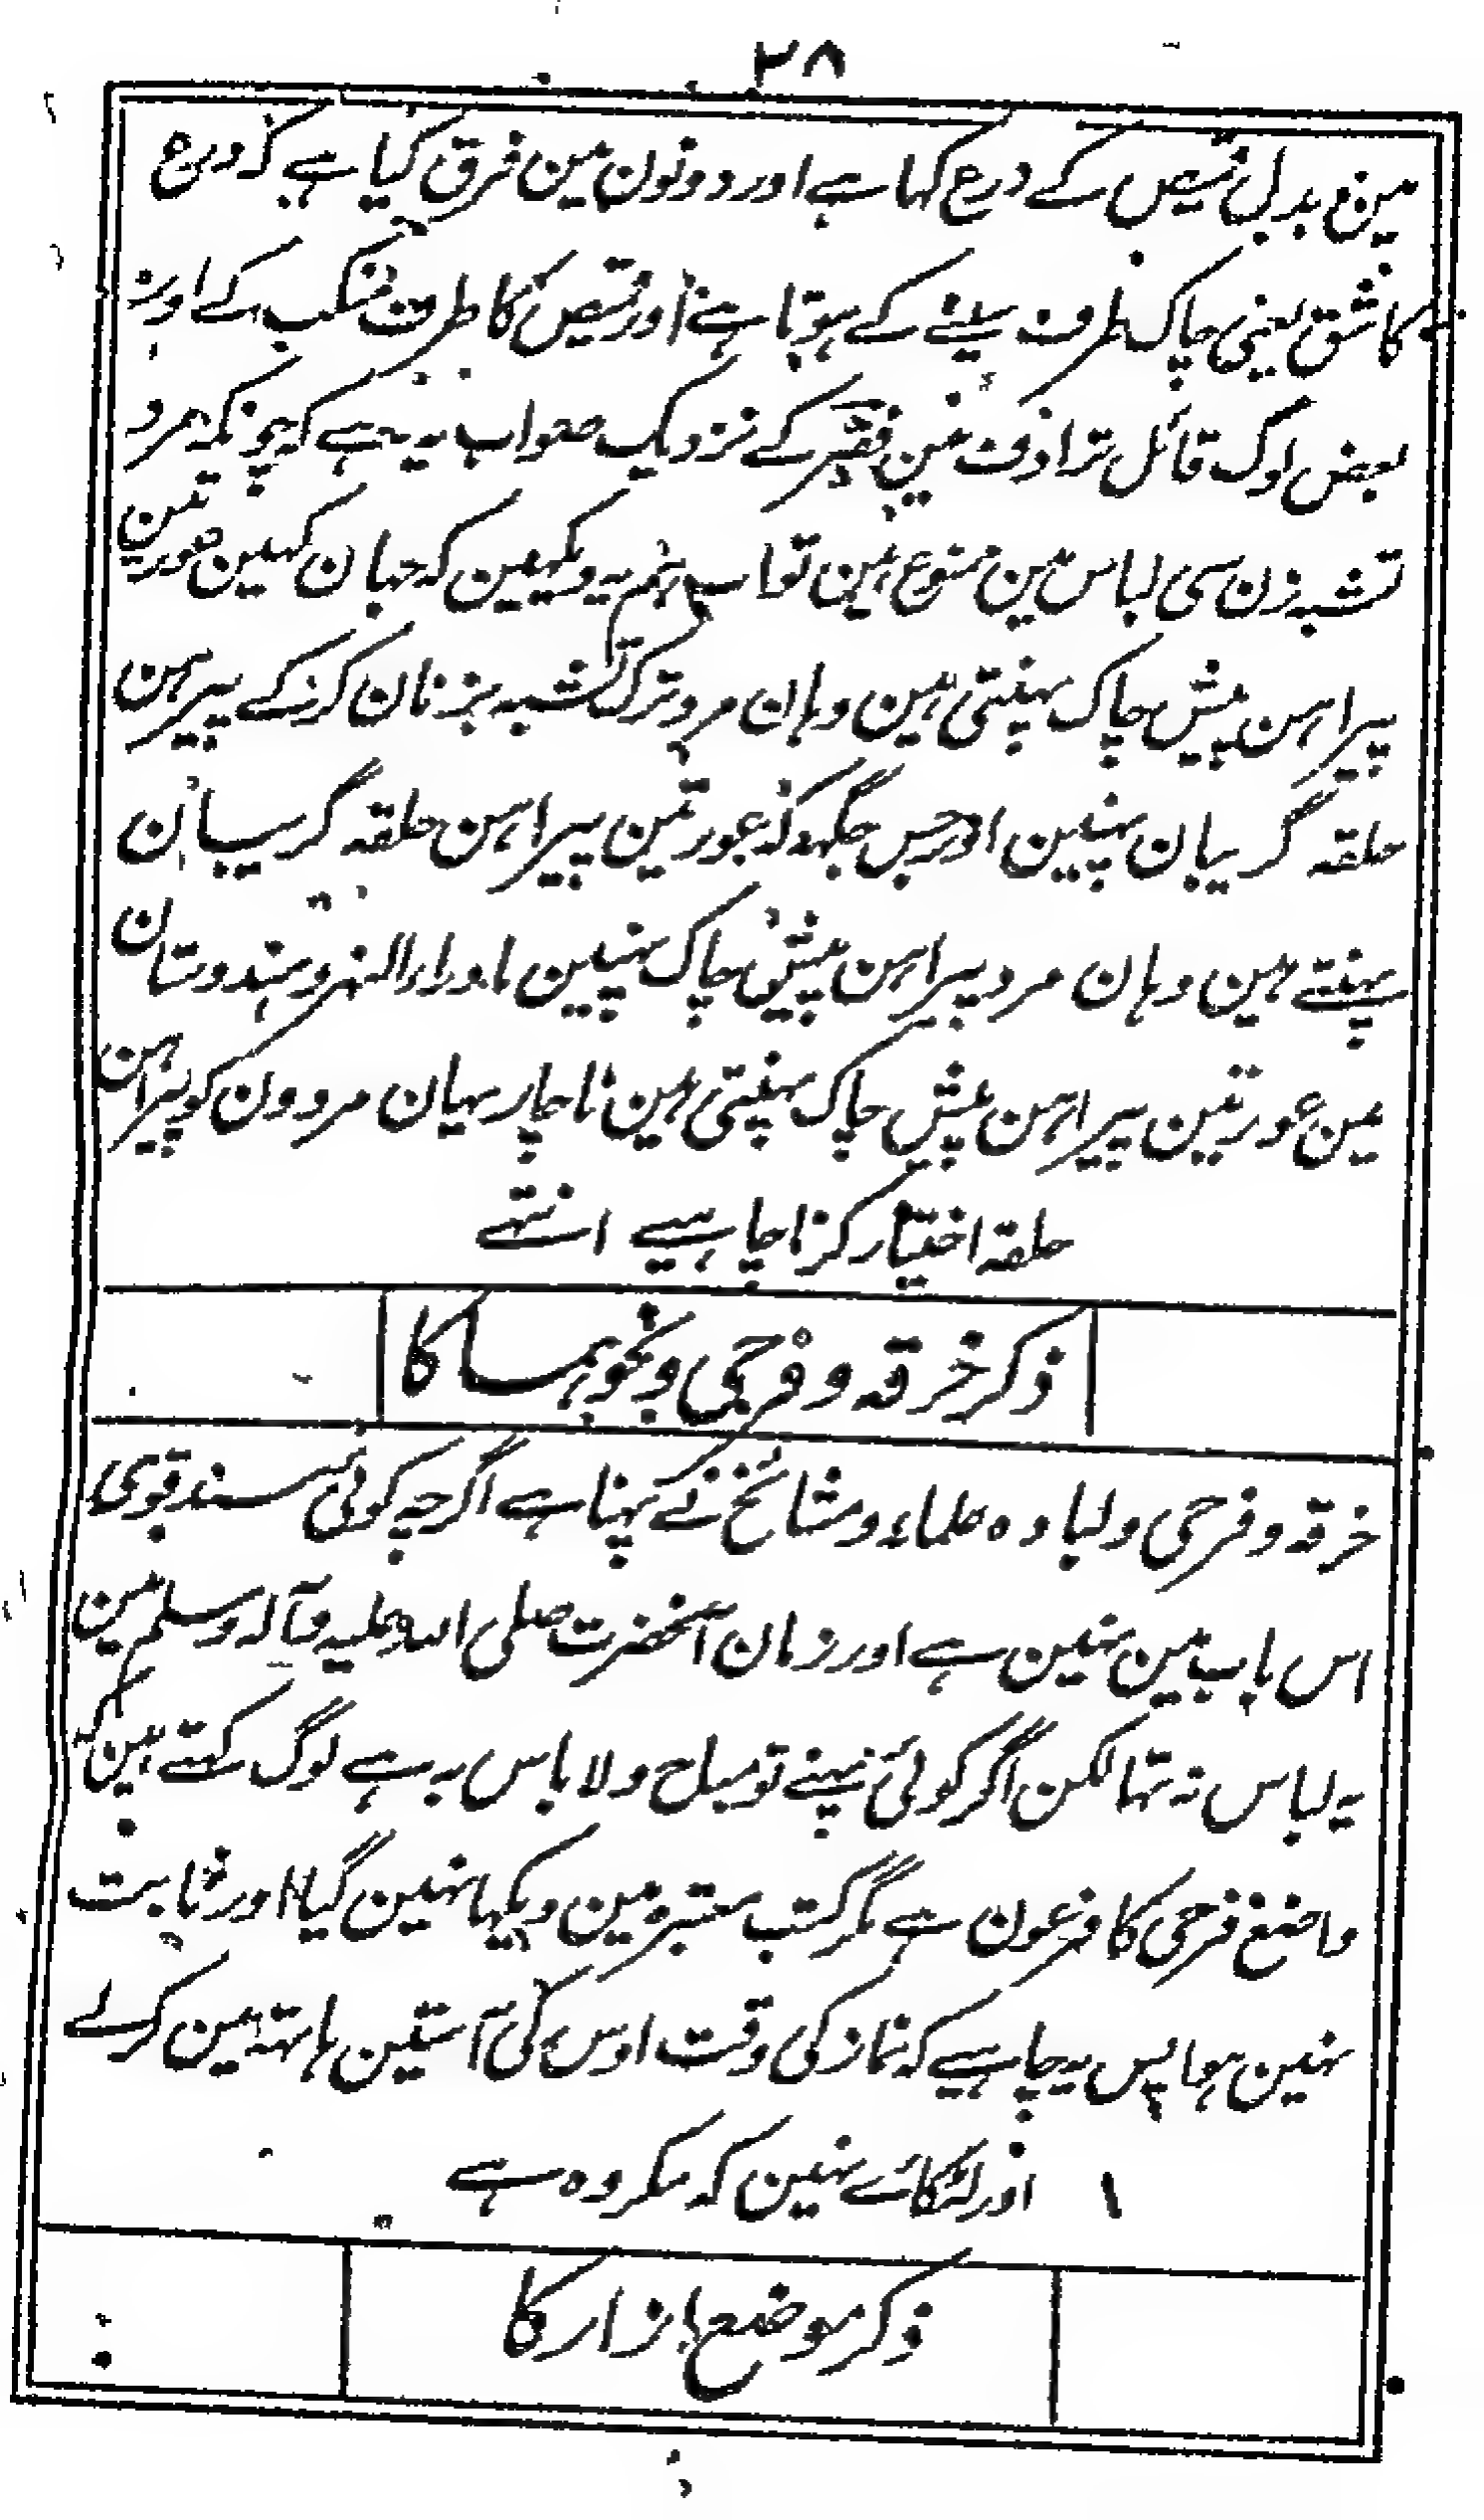 ۲۸
مین بدل قمیص کے درع کہا ہے اور دونون مین فرق کیا ہے کہ درع
کا شق یعنی چاک طرف سینے کے ہوتا ہے اور قمیص کا طرف منکب کے اور
بعض لوگ قائل ترادف ہین فقیر کے نزدیک صواب یہ ہے کہ چونکہ مرد
تشبہ زن سی لباس مین ممنوع ہین تو اب ہم یہ دیکہین کہ جہان کہین عورتین
پیراہن پیش چاک پہنتی ہین وہان مرد ترک تشبہ بزنان کرکے پیرہن
حلقہ گریبان پہنین اور جس جگہہ کہ عورتین پیراہن حلقہ گریبان
پہنتے ہین وہان مرد پیراہن پیش چاک پہنین ماوراء النہر و ہندوستان
مین عورتین پیراہن پیش چاک پہنتی ہین ناچار یہان مردون کو پیراہن
حلقہ اختیار کرنا چاہیے انتہے
ذکر خرقہ و فرجی و نحوہما کا
خرقہ و فرجی و لبادہ علماء و مشائخ نے پہنا ہے اگرچہ کوئی سند قوی
اس باب مین نہین ہے اور زمان آنحضرت صلی اللہ علیہ وآلہ وسلم مین
یہ لباس نہ تہا لکن اگر کوئی پہنے تو مباح ولا باس بہ ہے لوگ کہتے ہین کہ
واضع فرجی کا فرعون ہے مگر کتب معتبرہ مین دیکہا نہین گیا اور ثابت
نہین ہوا پس یہ چاہیے کہ نماز کی وقت اوس کی آستین ہاتہہ مین کرلے
اور لٹکائے نہین کہ مکروہ ہے
ذکر موضع ازار کا